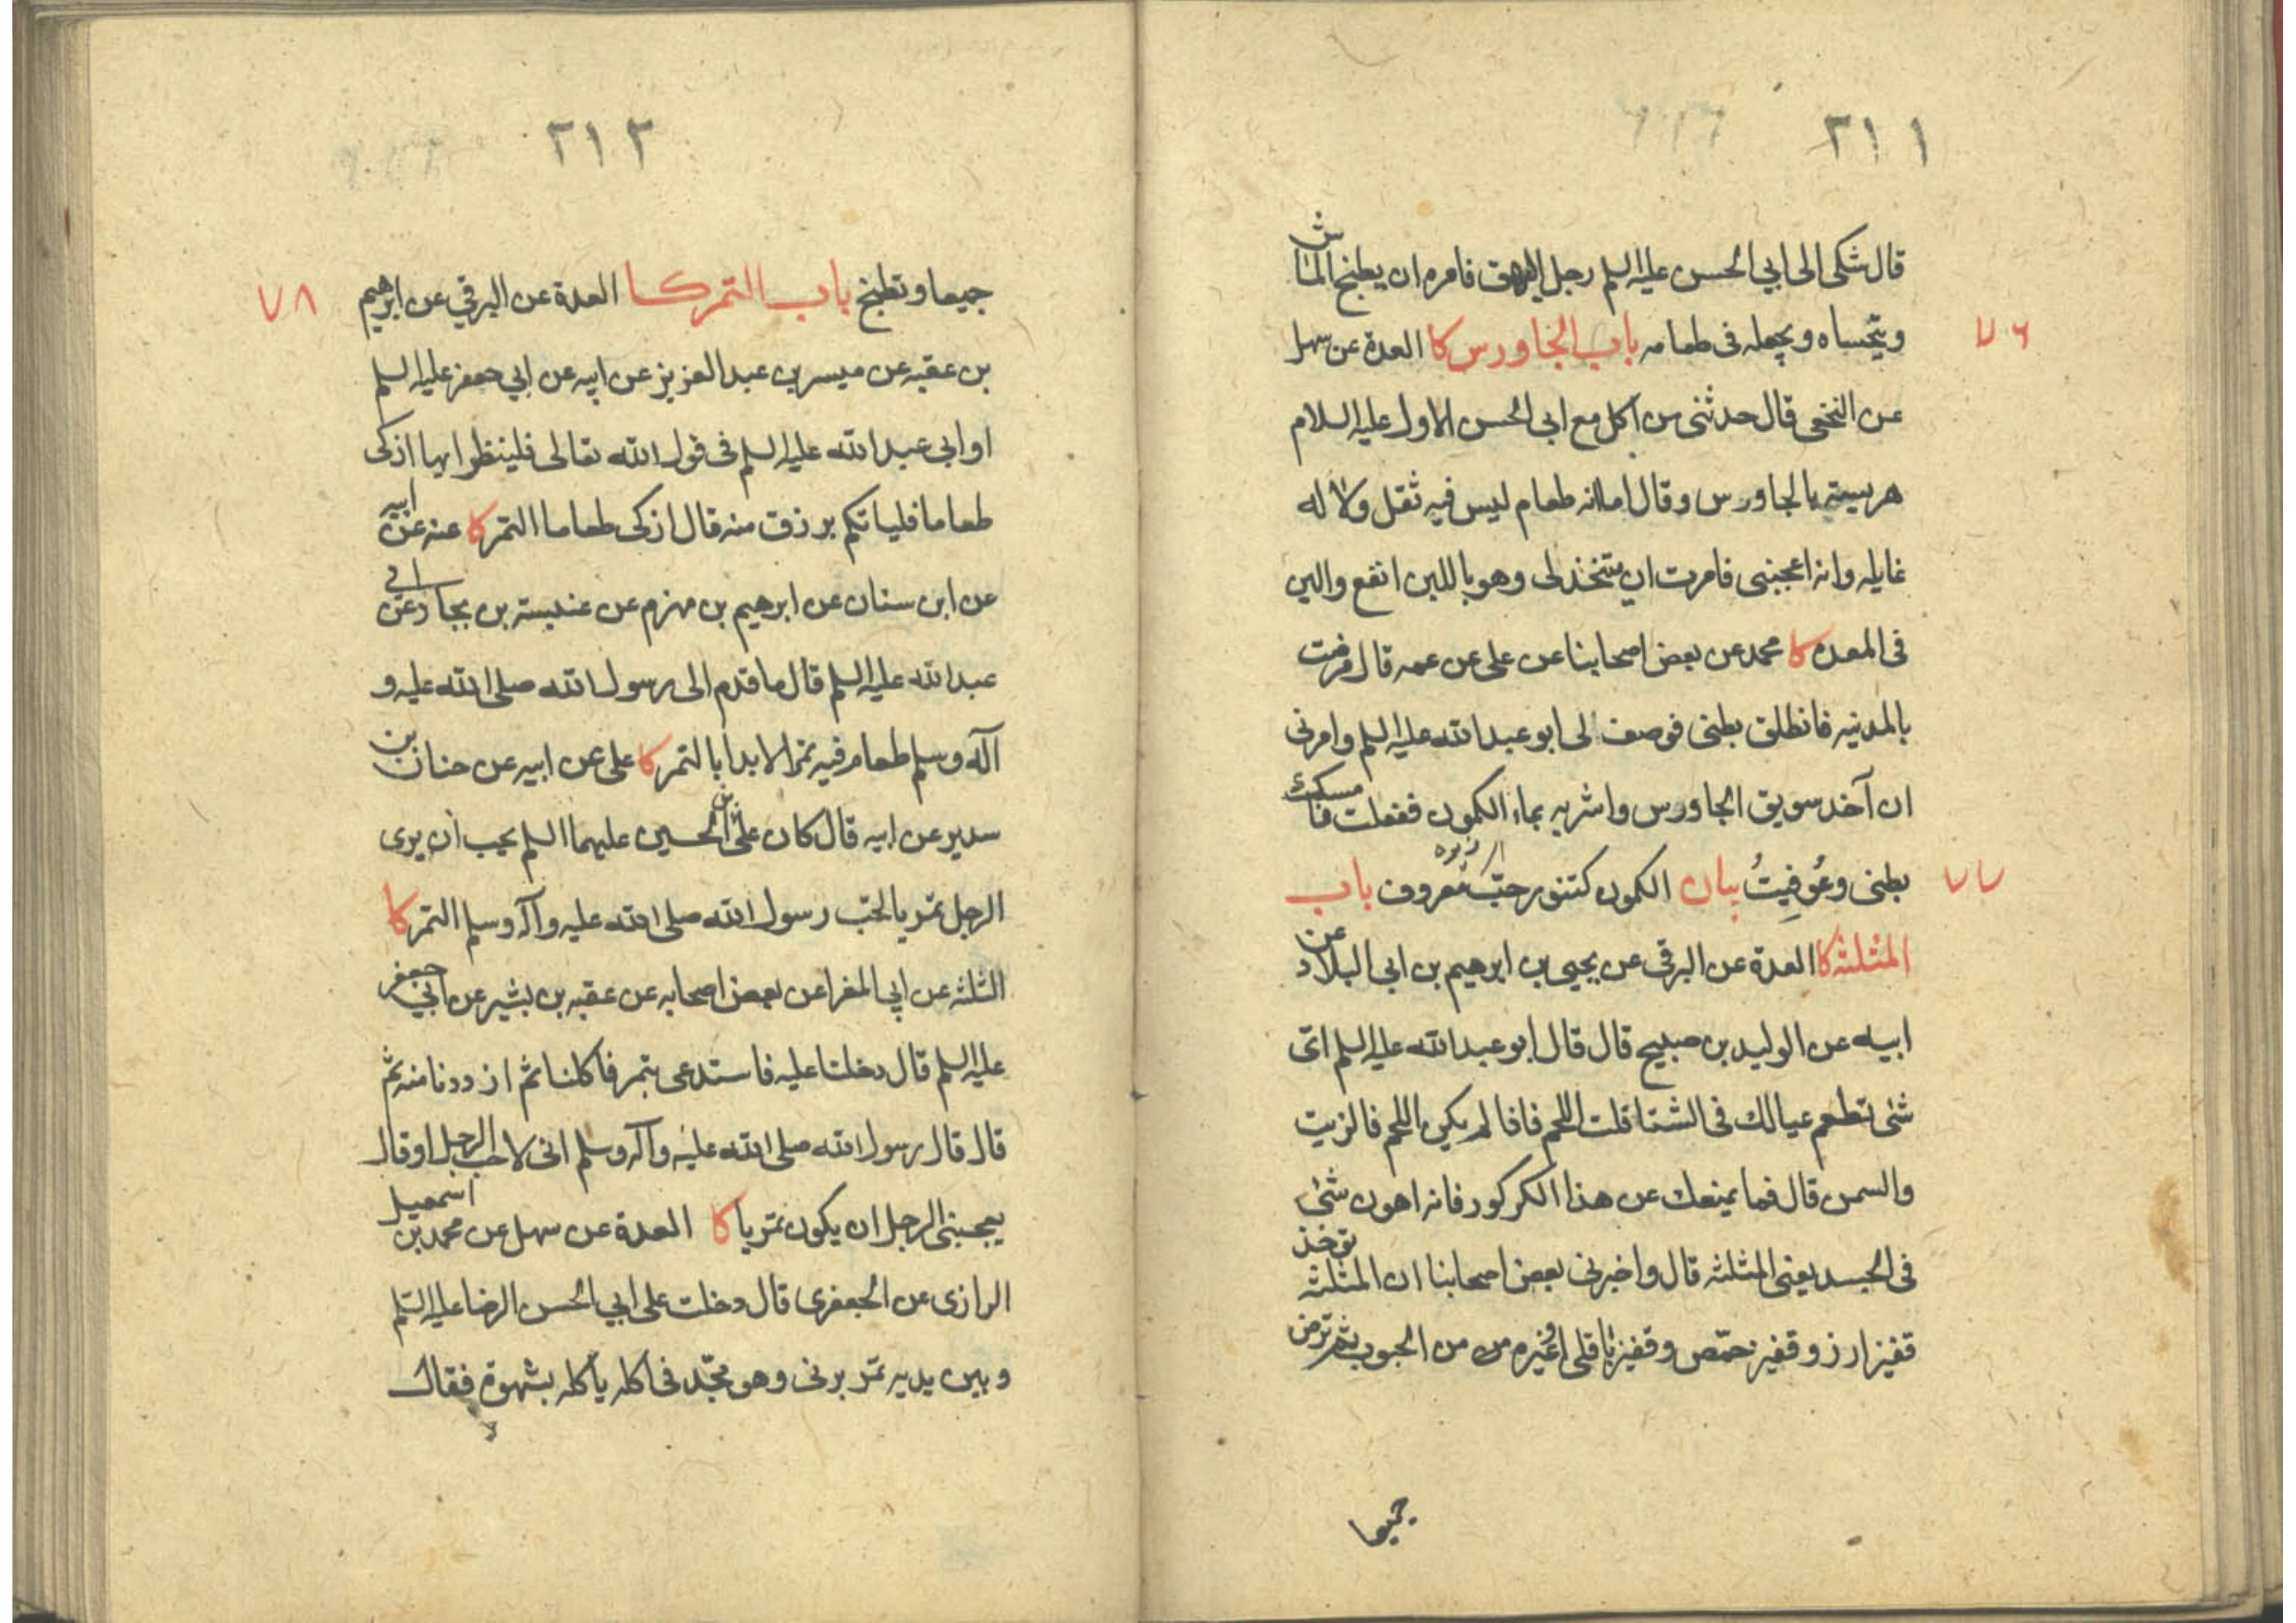 ٢١١
قال شكى الى ابي الحسن عليه السلم رجل البهق فامره ان يطبخ الماش
ويتحساه ويجعله فى طعامه باب الجاورس كا العدة عن سهل
٧٦
عن النخعى قال حدثنى من اكل مع ابى الحسن الاول عليه السلام
هريسة بالجاورس وقال اما انه طعام ليس فيه ثقل ولا له
غايله وانه اعجبنى فامرت ان يتخذ لى وهو باللبن انفع والين
فى المعده كا محمد عن بعض اصحابنا عن على عن عمه قال مرضت
بالمدينه فانطلق بطنى فوصف لى ابو عبد الله عليه السلم وامرنى
ان آخذ سويق الجاورس واشربه بماء الكمون ففعلت فامسك
بطنى وعُوفِيتُ بيان الكمون كتنور حبّ معروف باب
٧٧
المثلثه كا العدة عن البرقى عن يحيى بن ابرهيم بن ابى البلاد عن
ابيه عن الوليد بن صبيح قال قال ابو عبد الله عليه السلم اىّ
شئ تطعم عيالك فى الشتا قلت اللحم فاذا لم يكن اللحم فالزيت
والسمن قال فما يمنعك عن هذا الكركور فانه اهون شئ
فى الجسد يعنى المثلثه قال واخبرنى بعض اصحابنا ان المثلثه تؤخذ
قفيز ارز وقفيز حمّص وقفيز باقلى او غيره من الحبوب ثم ترض
جميعا
٢١٢
جميعا وتطبخ باب التمر كا العدة عن البرقي عن ابرهيم
٧٨
بن عقبه عن ميسر بن عبد العزيز عن ابيه عن ابي جعفر عليه السلم
او ابى عبد الله عليه السلم فى قول الله تعالى فلينظر ايها ازكى
طعاما فلياتكم برزق منه قال ازكى طعاما التمر كا عنه عن ابيه
عن ابن سنان عن ابرهيم بن مهزم عن عنبسة بن بجاد عن ابى
عبد الله عليه السلم قال ما قدم الى رسول الله صلى الله عليه و
آله وسلم طعام فيه تمر الا بدا بالتمر كا على عن ابيه عن حنان بن
سدير عن ابيه قال كان على بن الحسين عليهما السلم يحب أن يرى
الرجل تمريا لحبّ رسول الله صلى الله عليه وآله وسلم التمر كا
الثلثه عن ابي المغرا عن بعض اصحابه عن عقبه بن بشير عن ابي جعفر
عليه السلم قال دخلنا عليه فاستدعى بتمر فاكلنا ثم ازددنا منه ثم
قال قال رسول الله صلى الله عليه وآله وسلم انى لاحب الرجل او قال
يعجبنى الرجل ان يكون تمريا كا العدة عن سهل عن محمد بن اسمعيل
الرازى عن الجعفرى قال دخلت على ابي الحسن الرضا عليه السّلم
وبين يديه تمر برنى وهو مجدّ فى اكله يأكله بشهوة فقال